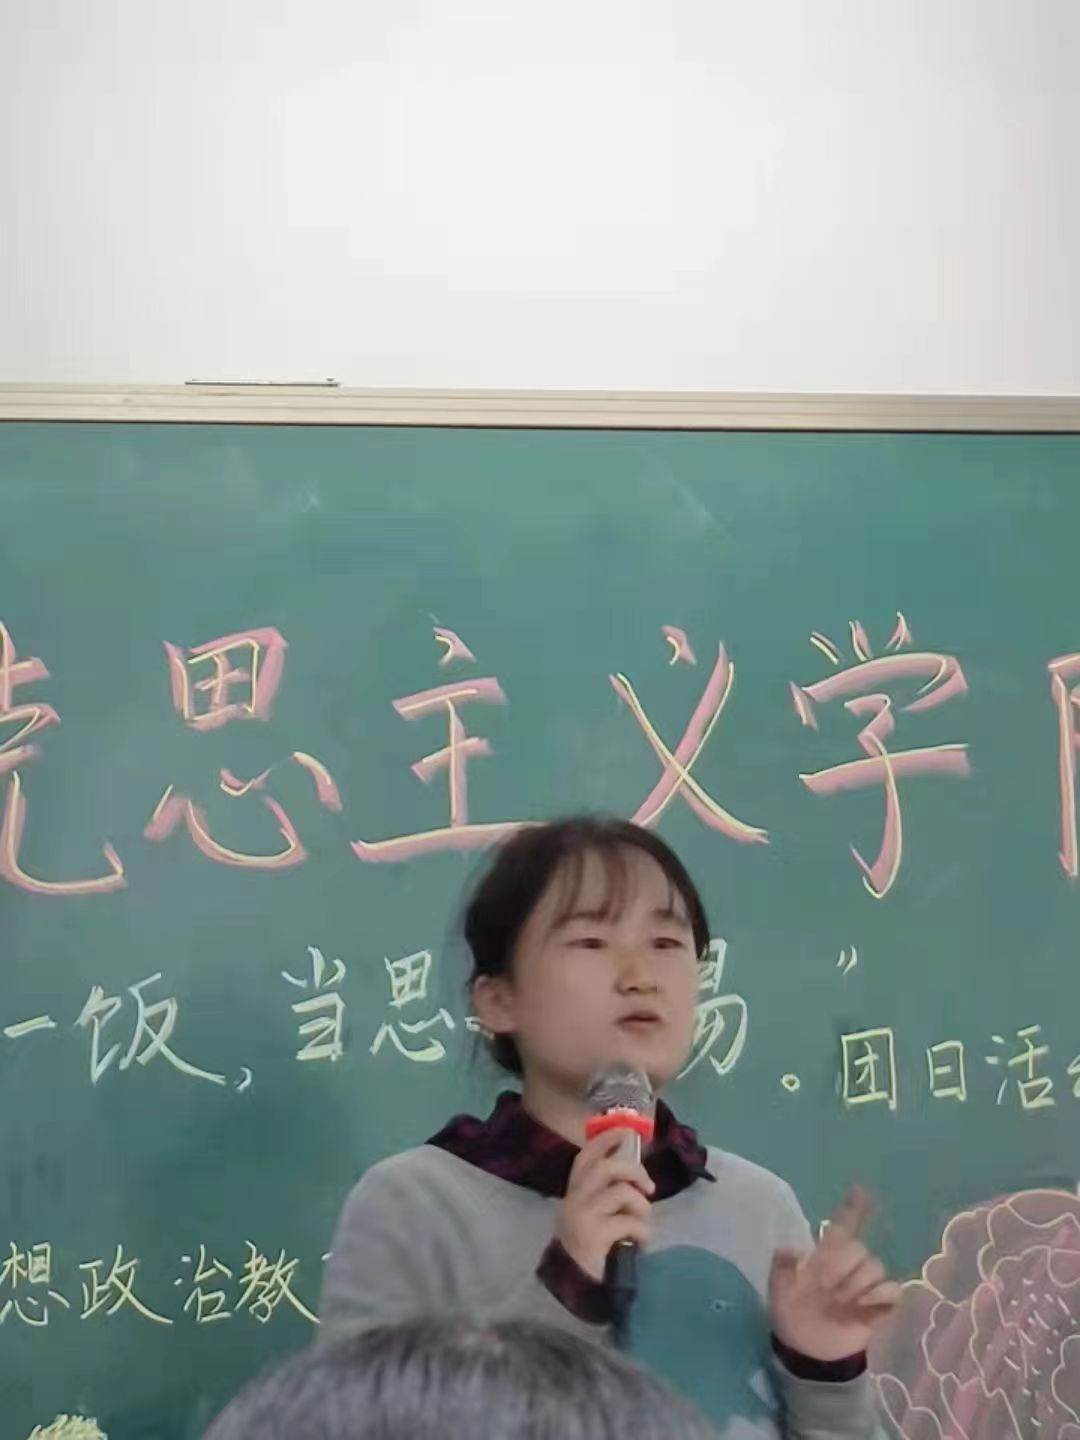 思主义学
一饭，当思 易。”团日活
想政治教